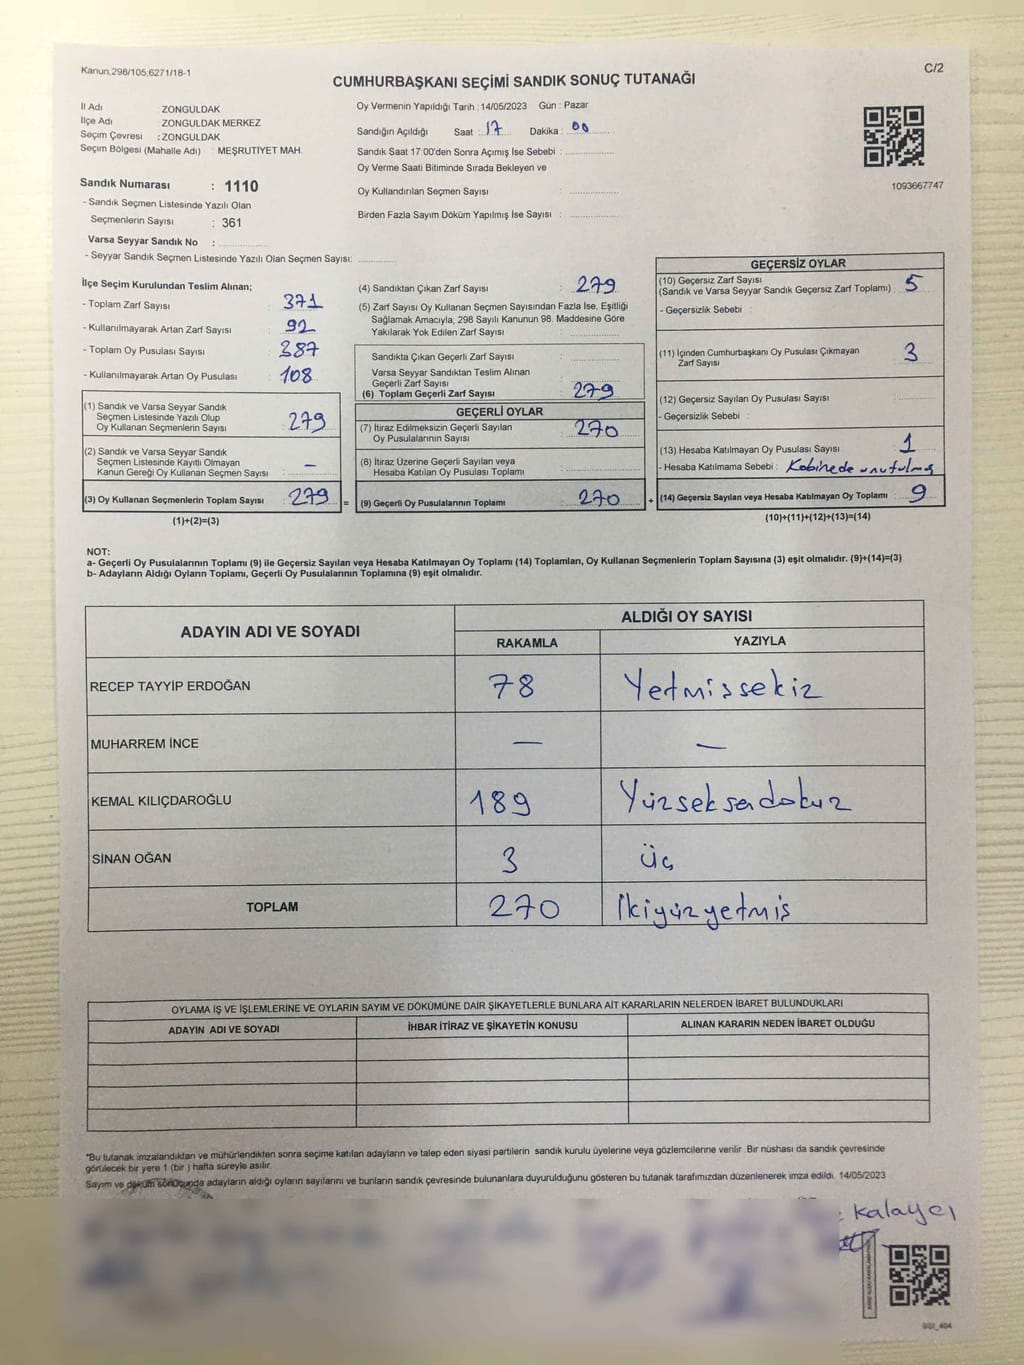 Kanun,298/105;6271/18-1
C/2
CUMHURBAŞKANI SEÇİMİ SANDIK SONUÇ TUTANAĞI
İl Adı : ZONGULDAK
İlçe Adı : ZONGULDAK MERKEZ
Seçim Çevresi : ZONGULDAK
Seçim Bölgesi (Mahalle Adı) : MEŞRUTİYET MAH.
Sandık Numarası : 1110
- Sandık Seçmen Listesinde Yazılı Olan
Seçmenlerin Sayısı : 361
Varsa Seyyar Sandık No : ............
- Seyyar Sandık Seçmen Listesinde Yazılı Olan Seçmen Sayısı: ............
Oy Vermenin Yapıldığı Tarih : 14/05/2023 Gün : Pazar
Sandığın Açıldığı Saat : 17 Dakika : 00
Sandık Saat 17:00'den Sonra Açımış İse Sebebi : ............
Oy Verme Saati Bitiminde Sırada Bekleyen ve
Oy Kullandırılan Seçmen Sayısı : ............
Birden Fazla Sayım Döküm Yapılmış İse Sayısı : ............
1093667747
İlçe Seçim Kurulundan Teslim Alınan;
- Toplam Zarf Sayısı : 371
- Kullanılmayarak Artan Zarf Sayısı : 92
- Toplam Oy Pusulası Sayısı : 387
- Kullanılmayarak Artan Oy Pusulası : 108
(1) Sandık ve Varsa Seyyar Sandık
Seçmen Listesinde Yazılı Olup
Oy Kullanan Seçmenlerin Sayısı : 279
(2) Sandık ve Varsa Seyyar Sandık
Seçmen Listesinde Kayıtlı Olmayan
Kanun Gereği Oy Kullanan Seçmen Sayısı : —
(3) Oy Kullanan Seçmenlerin Toplam Sayısı : 279 =
(1)+(2)=(3)
(4) Sandıktan Çıkan Zarf Sayısı : 279
(5) Zarf Sayısı Oy Kullanan Seçmen Sayısından Fazla İse, Eşitliği
Sağlamak Amacıyla, 298 Sayılı Kanunun 98. Maddesine Göre
Yakılarak Yok Edilen Zarf Sayısı : ............
Sandıkta Çıkan Geçerli Zarf Sayısı : ............
Varsa Seyyar Sandıktan Teslim Alınan
Geçerli Zarf Sayısı : ............
(6) Toplam Geçerli Zarf Sayısı : 279
GEÇERLİ OYLAR
(7) İtiraz Edilmeksizin Geçerli Sayılan
Oy Pusulalarının Sayısı : 270
(8) İtiraz Üzerine Geçerli Sayılan veya
Hesaba Katılan Oy Pusulası Toplamı : ............
(9) Geçerli Oy Pusulalarının Toplamı : 270 +
GEÇERSİZ OYLAR
(10) Geçersiz Zarf Sayısı
(Sandık ve Varsa Seyyar Sandık Geçersiz Zarf Toplamı) : 5
- Geçersizlik Sebebi :
(11) İçinden Cumhurbaşkanı Oy Pusulası Çıkmayan
Zarf Sayısı : 3
(12) Geçersiz Sayılan Oy Pusulası Sayısı : ............
- Geçersizlik Sebebi :
(13) Hesaba Katılmayan Oy Pusulası Sayısı : 1
- Hesaba Katılmama Sebebi : Kabinede unutulmuş
(14) Geçersiz Sayılan veya Hesaba Katılmayan Oy Toplamı : 9
(10)+(11)+(12)+(13)=(14)
NOT:
a- Geçerli Oy Pusulalarının Toplamı (9) ile Geçersiz Sayılan veya Hesaba Katılmayan Oy Toplamı (14) Toplamları, Oy Kullanan Seçmenlerin Toplam Sayısına (3) eşit olmalıdır. (9)+(14)=(3)
b- Adayların Aldığı Oyların Toplamı, Geçerli Oy Pusulalarının Toplamına (9) eşit olmalıdır.
ADAYIN ADI VE SOYADI
ALDIĞI OY SAYISI
RAKAMLA YAZIYLA
RECEP TAYYİP ERDOĞAN 78 Yetmişsekiz
MUHARREM İNCE — —
KEMAL KILIÇDAROĞLU 189 Yüzseksendokuz
SİNAN OĞAN 3 Üç
TOPLAM 270 İkiyüzyetmiş
OYLAMA İŞ VE İŞLEMLERİNE VE OYLARIN SAYIM VE DÖKÜMÜNE DAİR ŞİKAYETLERLE BUNLARA AİT KARARLARIN NELERDEN İBARET BULUNDUKLARI
ADAYIN ADI VE SOYADI İHBAR İTİRAZ VE ŞİKAYETİN KONUSU ALINAN KARARIN NEDEN İBARET OLDUĞU
*Bu tutanak imzalandıktan ve mühürlendikten sonra seçime katılan adayların ve talep eden siyasi partilerin sandık kurulu üyelerine veya gözlemcilerine verilir. Bir nüshası da sandık çevresinde
görülecek bir yere 1 (bir ) hafta süreyle asılır.
Sayım ve döküm sonucunda adayların aldığı oyların sayılarını ve bunların sandık çevresinde bulunanlara duyurulduğunu gösteren bu tutanak tarafımızdan düzenlenerek imza edildi. 14/05/2023
: Kalaycı